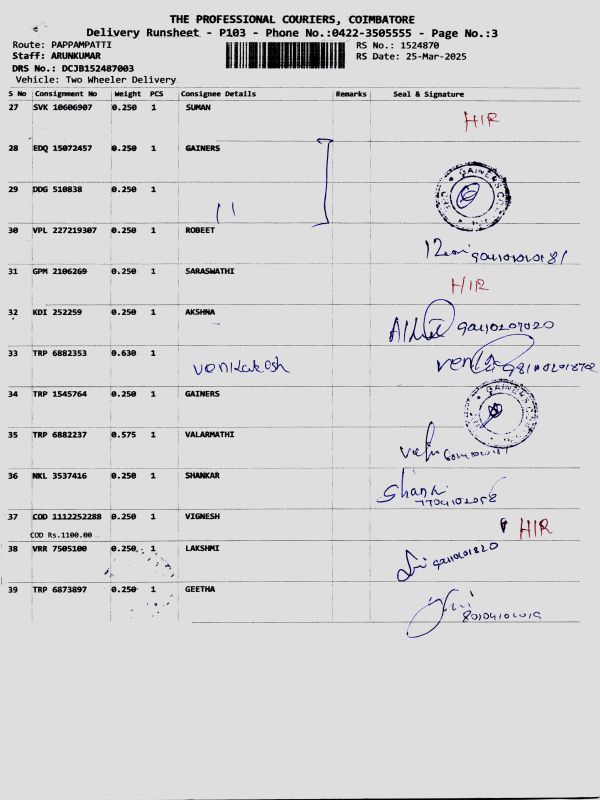 THE PROFESSIONAL COURIERS, COIMBATORE
Delivery Runsheet - P103 - Phone No.:0422-3505555 - Page No.:3
Route: PAPPAMPATTI RS No.: 1524870
Staff: ARUNKUMAR RS Date: 25-Mar-2025
DRS No.: DCJB152487003
Vehicle: Two Wheeler Delivery
S No Consignment No Weight PCS Consignee Details Remarks Seal & Signature
27 SVK 10606907 0.250 1 SUMAN H/R
28 EDQ 15072457 0.250 1 GAINERS
29 DDG 510838 0.250 1 GAINERS
30 VPL 227219307 0.250 1 ROBEET
31 GPM 2106269 0.250 1 SARASWATHI H/R
32 KDI 252259 0.250 1 AKSHNA
33 TRP 6882353 0.630 1 venkatesh
34 TRP 1545764 0.250 1 GAINERS GAINERS
35 TRP 6882237 0.575 1 VALARMATHI
36 NKL 3537416 0.250 1 SHANKAR
37 COD 1112252288 0.250 1 VIGNESH H/R
COD Rs.1100.00
38 VRR 7505100 0.250 1 LAKSHMI
39 TRP 6873897 0.250 1 GEETHA